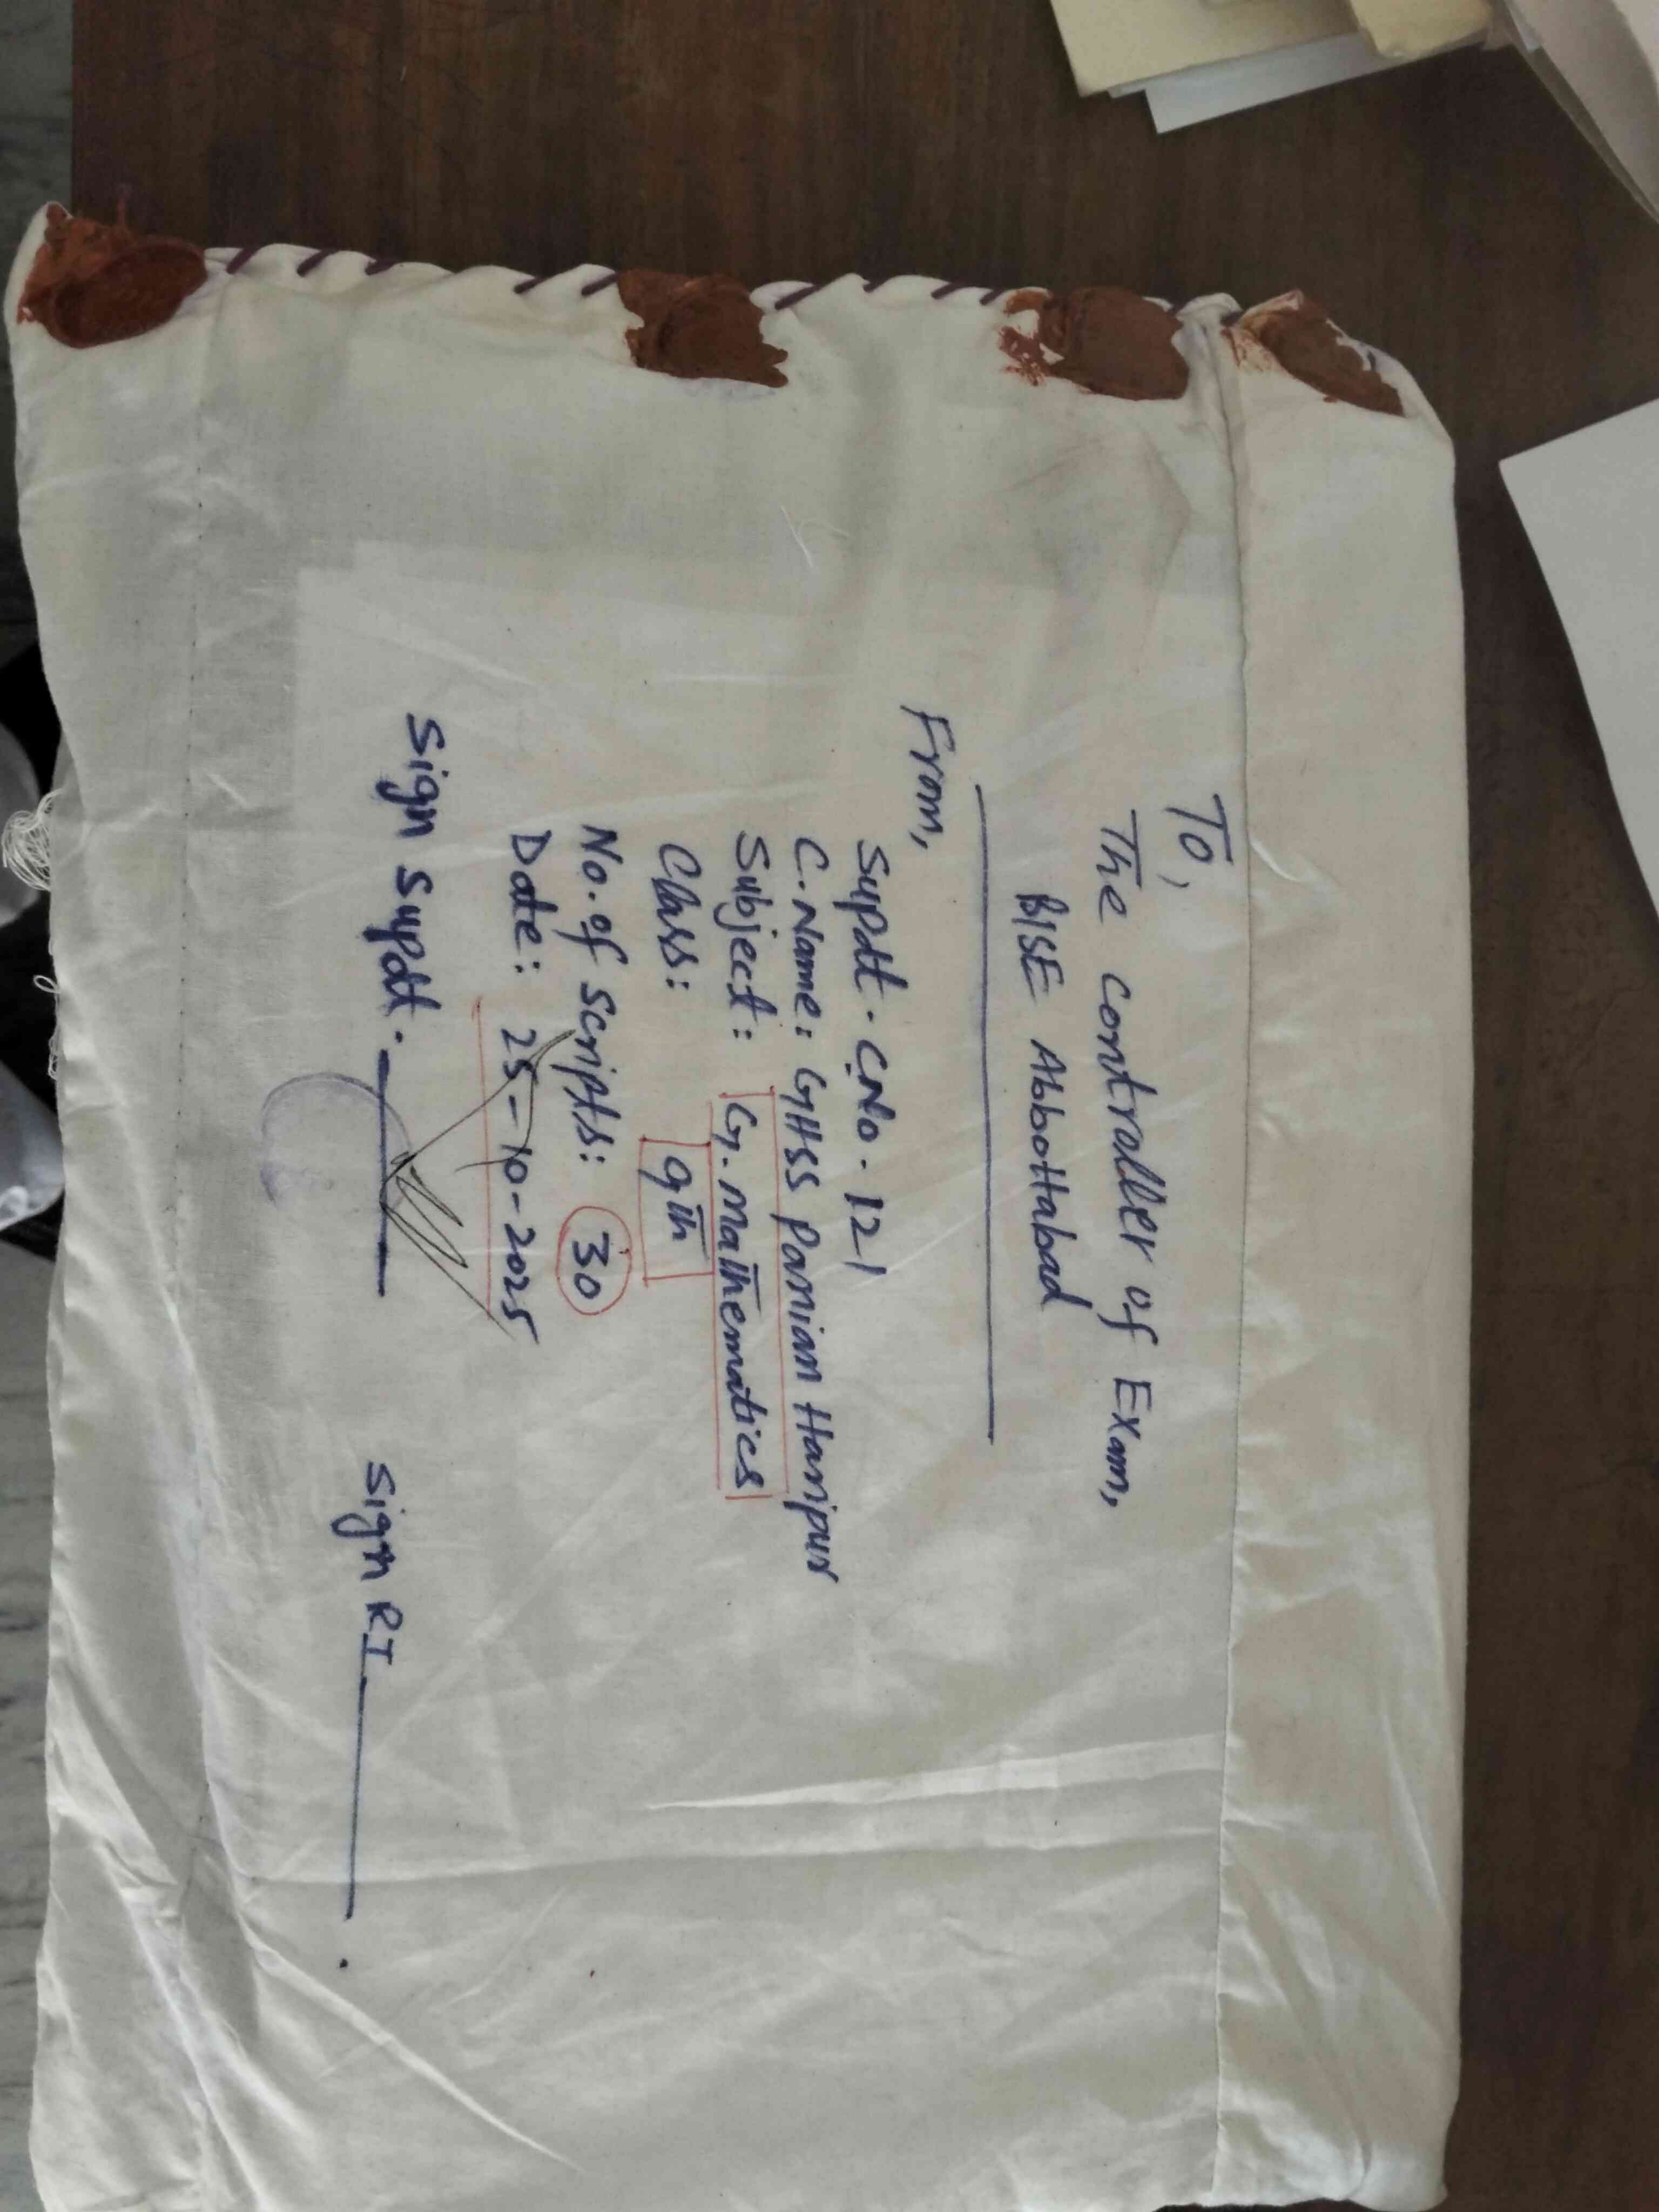 To,
The controller of Exam,
BISE Abbottabad
From,
Supdt. CNo. 121
C.Name: GHSS Panian Haripur
Subject: G. Mathematics
Class: 9th
No. of Scripts: 30
Date: 25-10-2025
Sign Supdt.
Sign RI